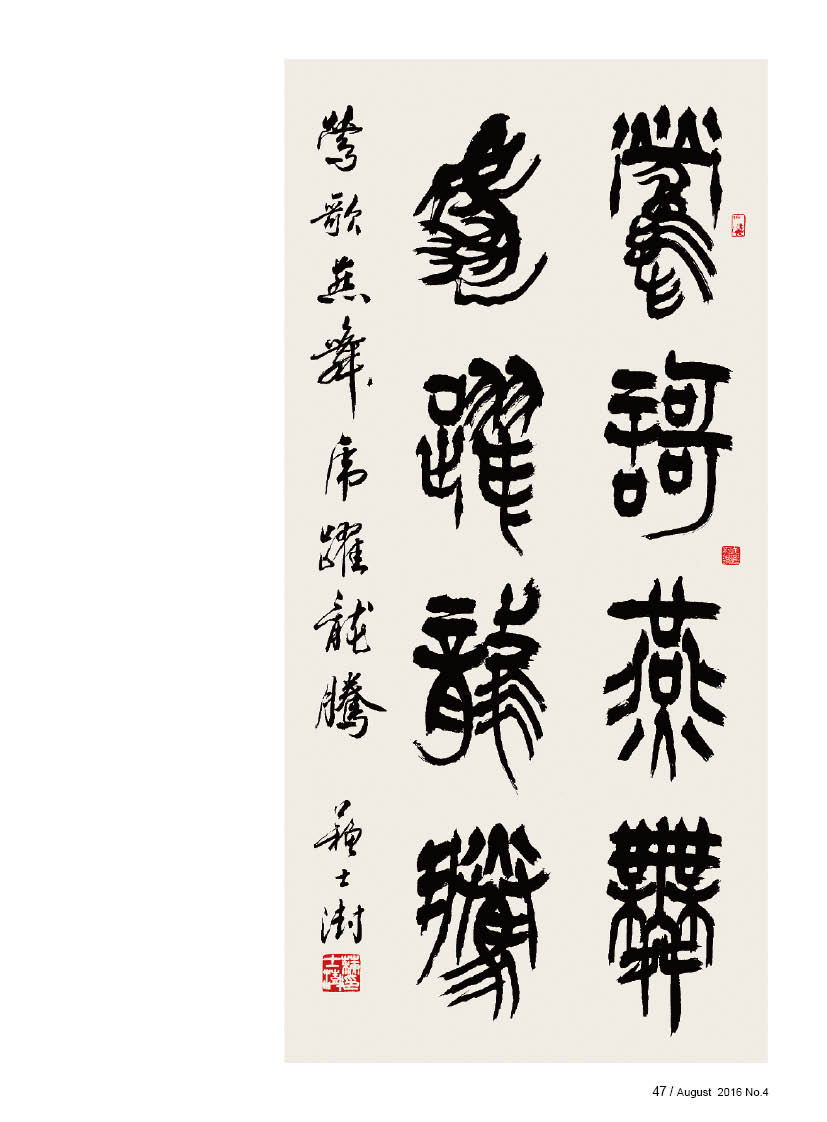 鶯謌燕舞
虎躍龍騰
鶯歌燕舞虎躍龍騰 蘇士澍
47 / August 2016 No.4